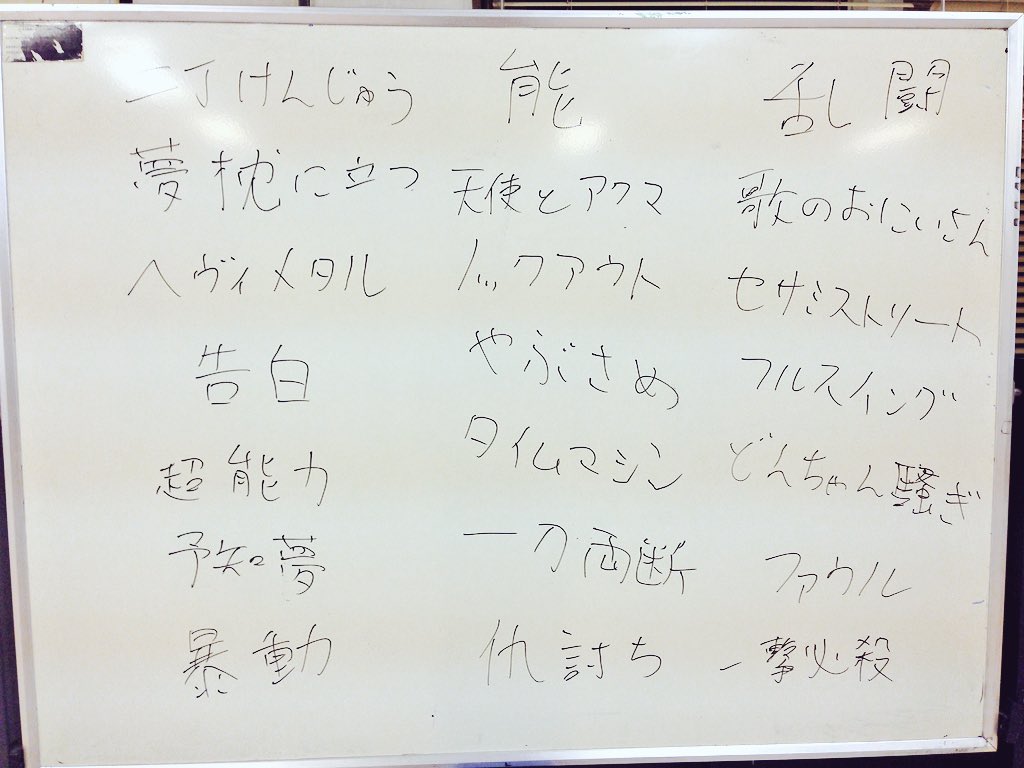 二丁けんじゅう
夢枕に立つ
ヘヴィメタル
告白
超能力
予知夢
暴動
能
天使とアクマ
ノックアウト
やぶさめ
タイムマシン
一刀両断
仇討ち
乱闘
歌のおにいさん
セサミストリート
フルスイング
どんちゃん騒ぎ
ファウル
一撃必殺